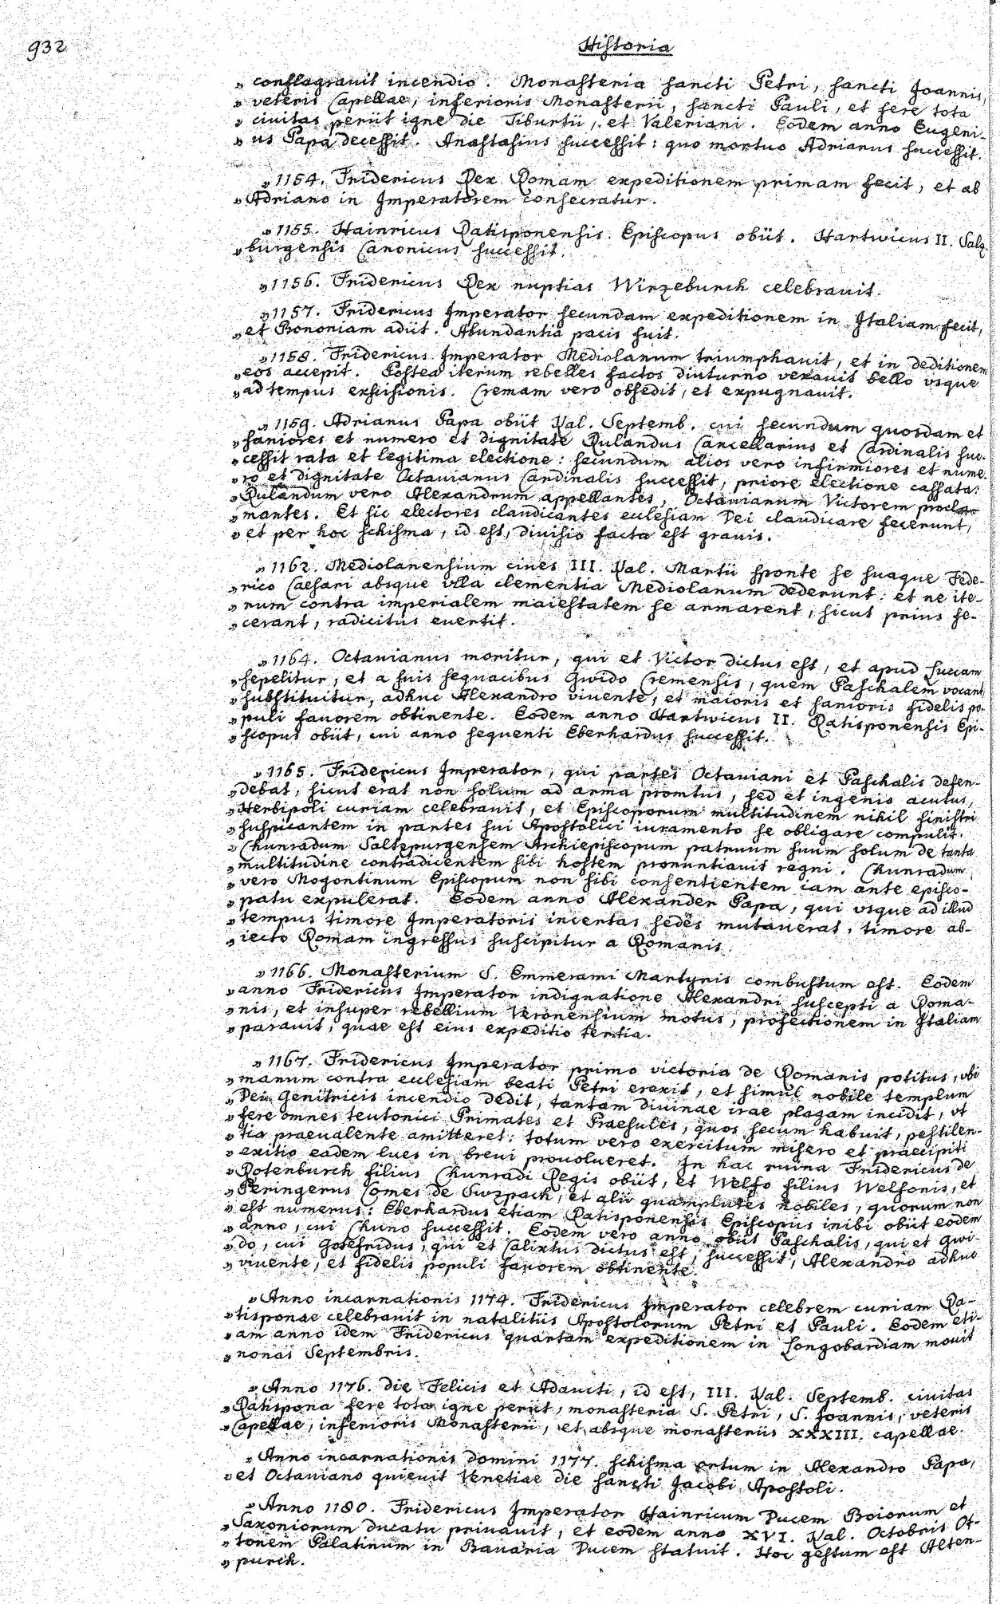 932
Historia
„ conflagravit incendio. Monasteria sancti Petri, sancti Joannis,
„ veteris Capellae, inferioris Monasterii, sancti Pauli, et fere tota
„ civitas periit igne die Tiburtii, et Valeriani. Eodem anno Eugeni-
„ us Papa decessit. Anastasius successit: quo mortuo Adrianus successit.
„ 1154. Fridericus Rex Romam expeditionem primam fecit, et ab
„ Adriano in Imperatorem consecratur.
„ 1155. Hainricus Ratisponensis Episcopus obiit. Hartwicus II. Salz-
„ burgensis Canonicus successit.
„ 1156. Fridericus Rex nuptias Wirzeburch celebravit.
„ 1157. Fridericus Imperator secundam expeditionem in Italiam fecit,
„ et Bononiam adiit. Abundantia pacis fuit.
„ 1158. Fridericus Imperator Mediolanum triumphavit, et in deditionem
„ eos accepit. Postea iterum rebelles factos diuturno vexavit bello vsque
„ ad tempus exscisionis. Cremam vero obsedit, et expugnavit.
„ 1159. Adrianus Papa obiit Kal. Septemb. cui secundum quosdam et
„ saniores et numero et dignitate Rulandus Cancellarius et Cardinalis suc-
„ cessit rata et legitima electione: secundum alios vero infirmiores et nume-
„ ro et dignitate Octavianus Cardinalis successit, priore electione cassata:
„ Rulandum vero Alexandrum appellantes, Octavianum Victorem procla-
„ mantes. Et sic electores claudicantes ecclesiam Dei claudicare fecerunt,
„ et per hoc schisma, id est, divisio facta est gravis.
„ 1162. Mediolanensium cives III. Kal. Martii sponte se suaque Fede-
„ rico Caesari absque vlla clementia Mediolanum dederunt: et ne ite-
„ rum contra imperialem maiestatem se armarent, sicut prius fe-
„ cerant, radicitus evertit.
„ 1164. Octavianus moritur, qui et Victor dictus est, et apud Luccam
„ sepelitur, et a suis sequacibus Gwido Cremensis, quem Paschalem vocant
„ substituitur, adhuc Alexandro vivente, et maioris et sanioris fidelis po-
„ puli favorem obtinente. Eodem anno Hartwicus II. Ratisponensis Epi-
„ scopus obiit, cui anno sequenti Eberhardus successit.
„ 1165. Fridericus Imperator, qui partes Octaviani et Paschalis defen-
„ debat, sicut erat non solum ad arma promtus, sed et ingenio acutus,
„ Herbipoli curiam celebravit, et Episcoporum multitudinem nihil sinistri
„ suspicantem in partes sui Apostolici iuramento se obligare compulit.
„ Chunradum Saltzpurgensem Archiepiscopum patruum suum solum de tanta
„ multitudine contradicentem sibi hostem pronuntiavit regni. Chunradum
„ vero Mogontinum Episcopum non sibi consentientem iam ante episco-
„ patu expulerat. Eodem anno Alexander Papa, qui vsque ad illud
„ tempus timore Imperatoris incertas sedes mutaverat, timore ab-
„ iecto Romam ingressus suscipitur a Romanis.
„ 1166. Monasterium S. Emmerami Martyris combustum est. Eodem
„ anno Fridericus Imperator indignatione Alexandri suscepti a Roma-
„ nis, et insuper rebellium Veronensium motus, profectionem in Italiam
„ paravit, quae est eius expeditio tertia.
„ 1167. Fridericus Imperator primo victoria de Romanis potitus, vbi
„ manum contra ecclesiam beati Petri erexit, et simul nobile templum
„ Dei genitricis incendio dedit, tantam divinae irae plagam incidit, vt
„ fere omnes teutonici Primates et Praesules, quos secum habuit, pestilen-
„ tia praevalente amitteret: totum vero exercitum misero et praecipiti
„ exitio eadem lues in brevi provolveret. In hac ruina Fridericus de
„ Rotenburch filius Chunradi Regis obiit, et Welfo filius Welfonis, et
„ Peringerus Comes de Swzpach, et alii quamplures nobiles, quorum non
„ est numerus: Eberhardus etiam Ratisponensis Episcopus inibi obiit eodem
„ anno, cui Chuno successit. Eodem vero anno obiit Paschalis, qui et Gwi-
„ do, cui Gotefridus, qui et Calixtus dictus est, successit, Alexandro adhuc
„ vivente, et fidelis populi favorem obtinente.
„ Anno incarnationis 1174. Fridericus Imperator celebrem curiam Ra-
„ tisponae celebravit in natalitiis Apostolorum Petri et Pauli. Eodem eti-
„ am anno idem Fridericus quartam expeditionem in Longobardiam movit
„ nonas Septembris.
„ Anno 1176. die Felicis et Adaucti, id est, III. Kal. Septemb. civitas
„ Ratispona fere tota igne periit, monasteria S. Petri, S. Joannis, veteris
„ Capellae, inferioris Monasterii, et absque monasteriis XXXIII. capellae.
„ Anno incarnationis domini 1177. schisma ortum in Alexandro Papa,
„ et Octaviano quievit Venetiae die sancti Jacobi Apostoli.
„ Anno 1180. Fridericus Imperator Hainricum Ducem Boiorum et
„ Saxoniorum ducatu privavit, et eodem anno XVI. Kal. Octobris Ot-
„ tonem Palatinum in Bavaria Ducem statuit. Hoc gestum est Alten-
„ purch.